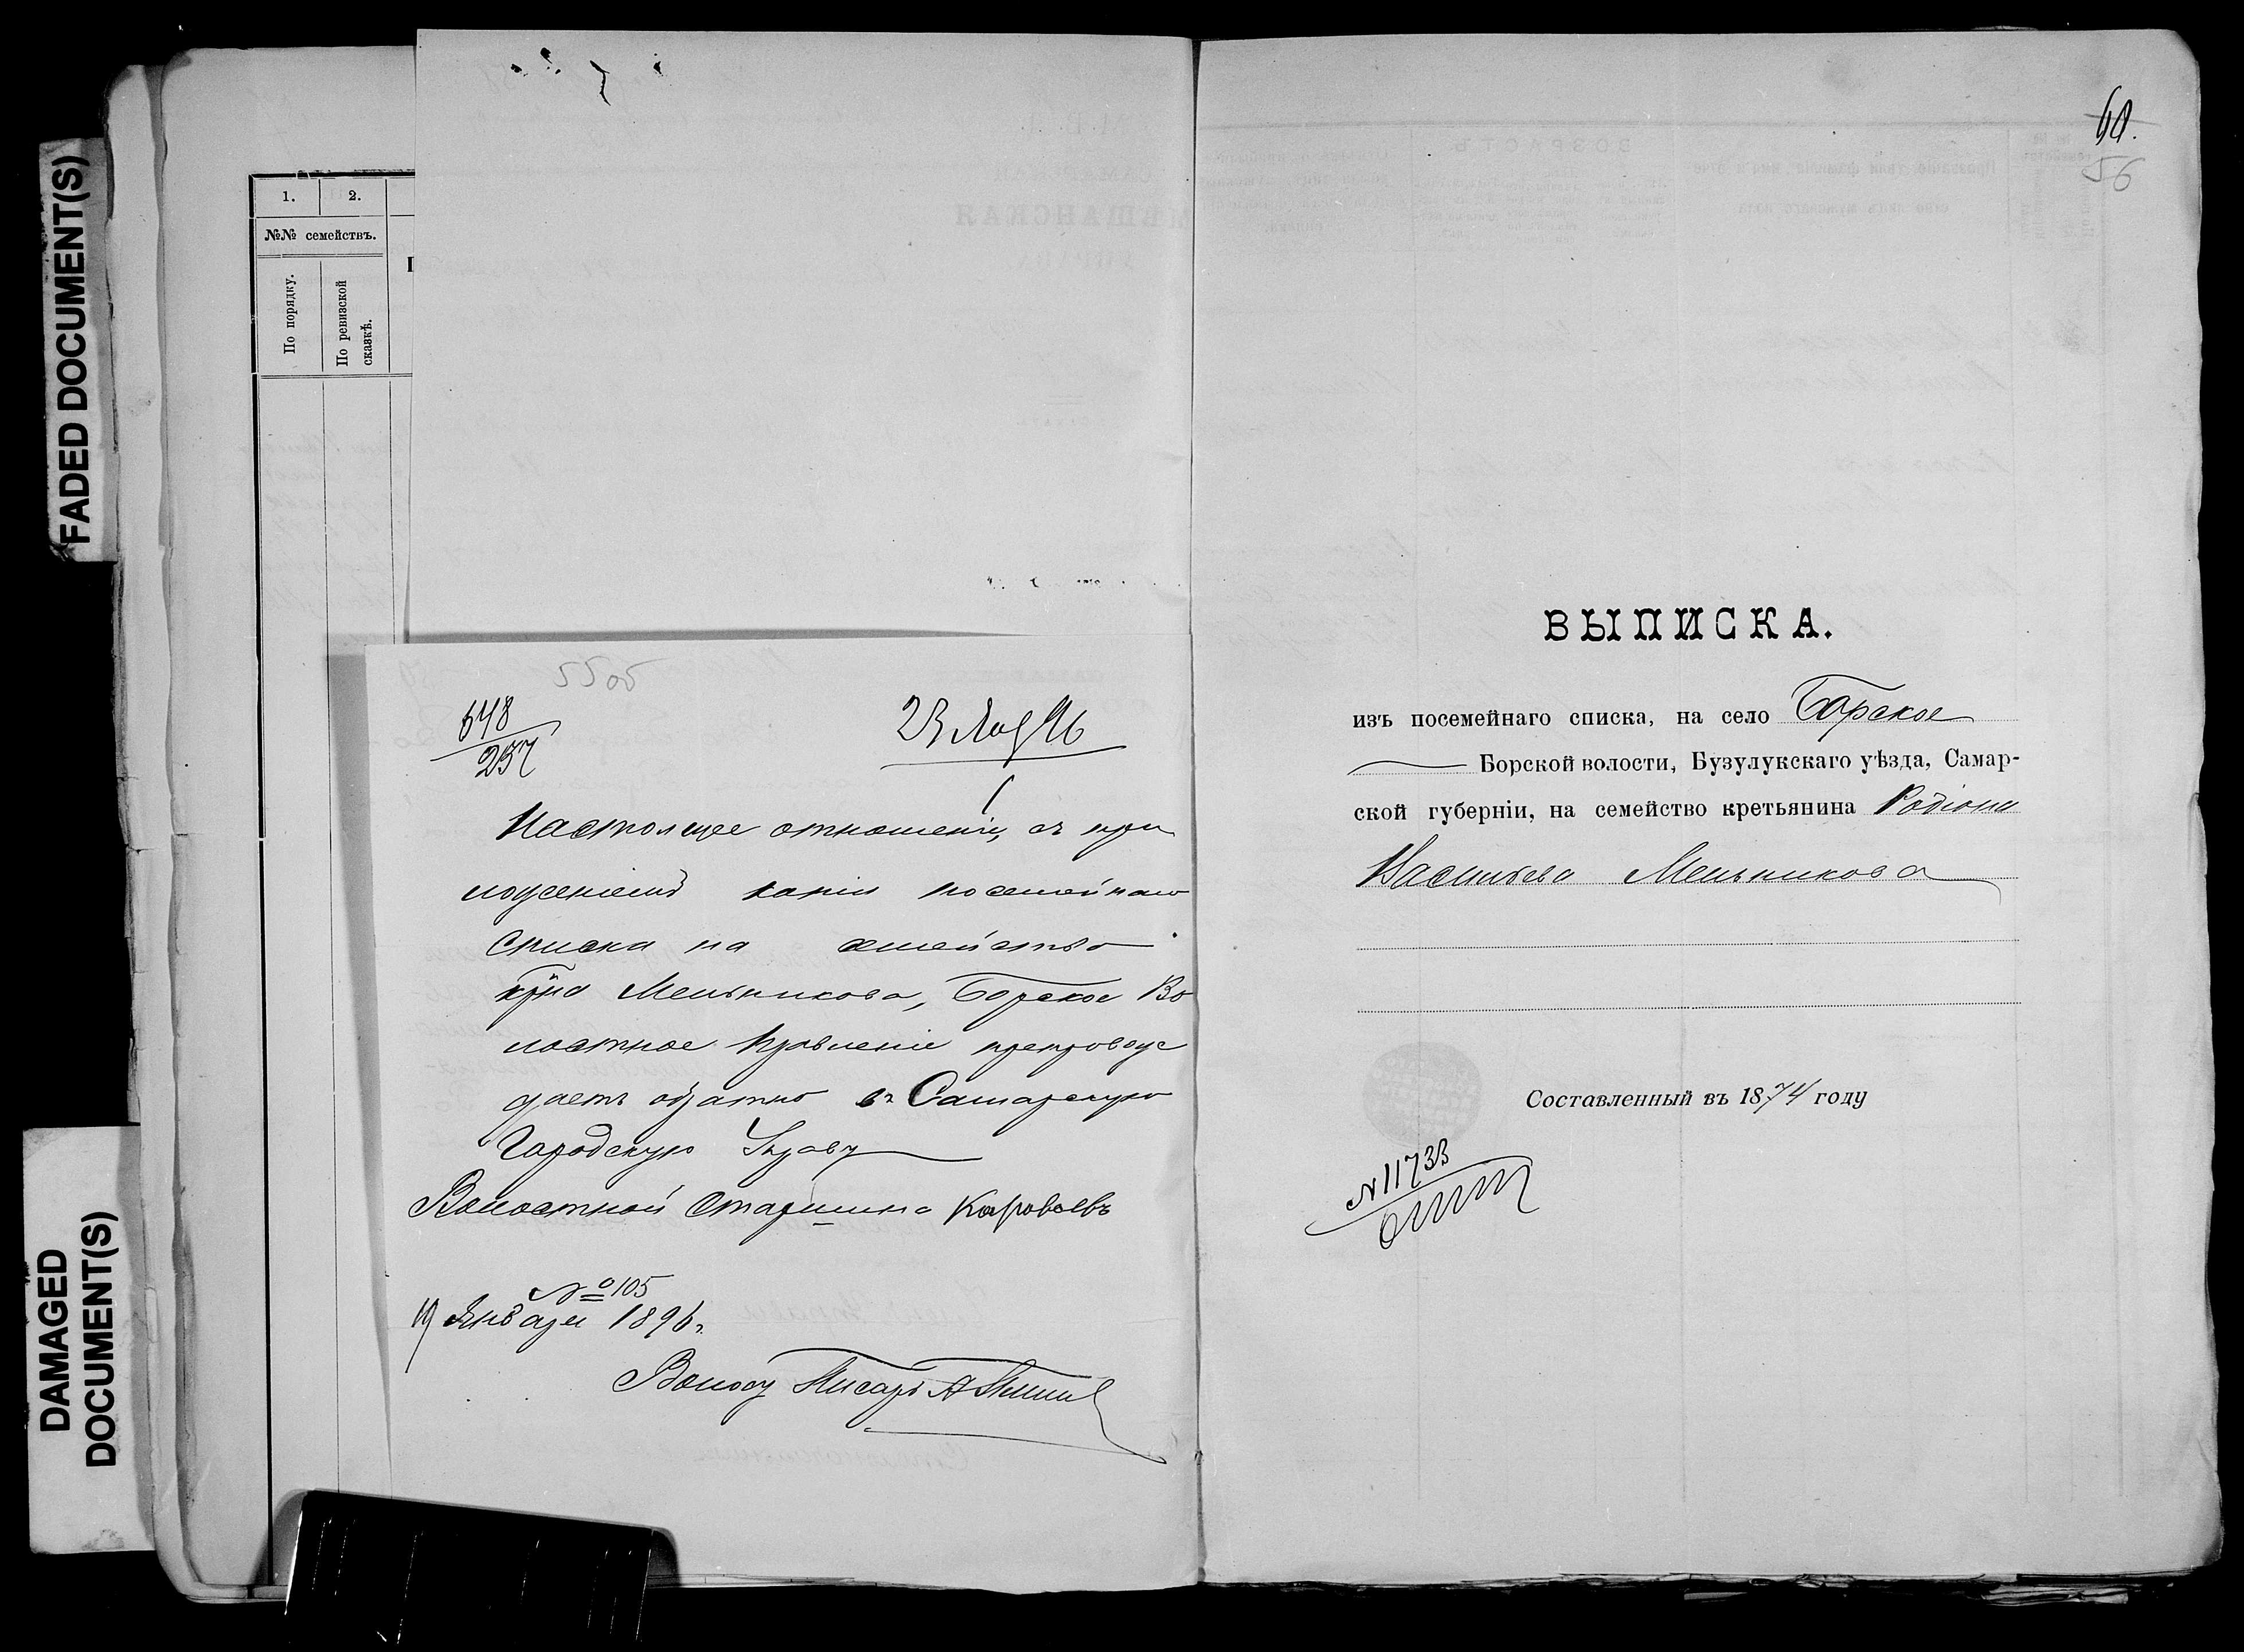 FADED DOCUMENT(S)
DAMAGED
DOCUMENT(S)
1. 2.
№№ семействъ.
По порядку.
По ревизской
сказкѣ.
55об
548
237
23 Янв 96
Настоящее отношеніе, съ при
ложеніемъ копіи посемейнаго
списка на семейство
кр-на Мельникова, Борское Во
лостное Правленіе препровож
даетъ обратно въ Самарскую
Городскую Управу
Волостной Старшина Короваевъ
№ 105
19 Января 1896 г.
Волост Писарь А
56
ВЫПИСКА.
изъ посемейнаго списка, на село Борское
Борской волости, Бузулукскаго уѣзда, Самар-
ской губерніи, на семейство кретьянина Родіона
Васильева Мельникова
Составленный въ 1874 году
№ 11733